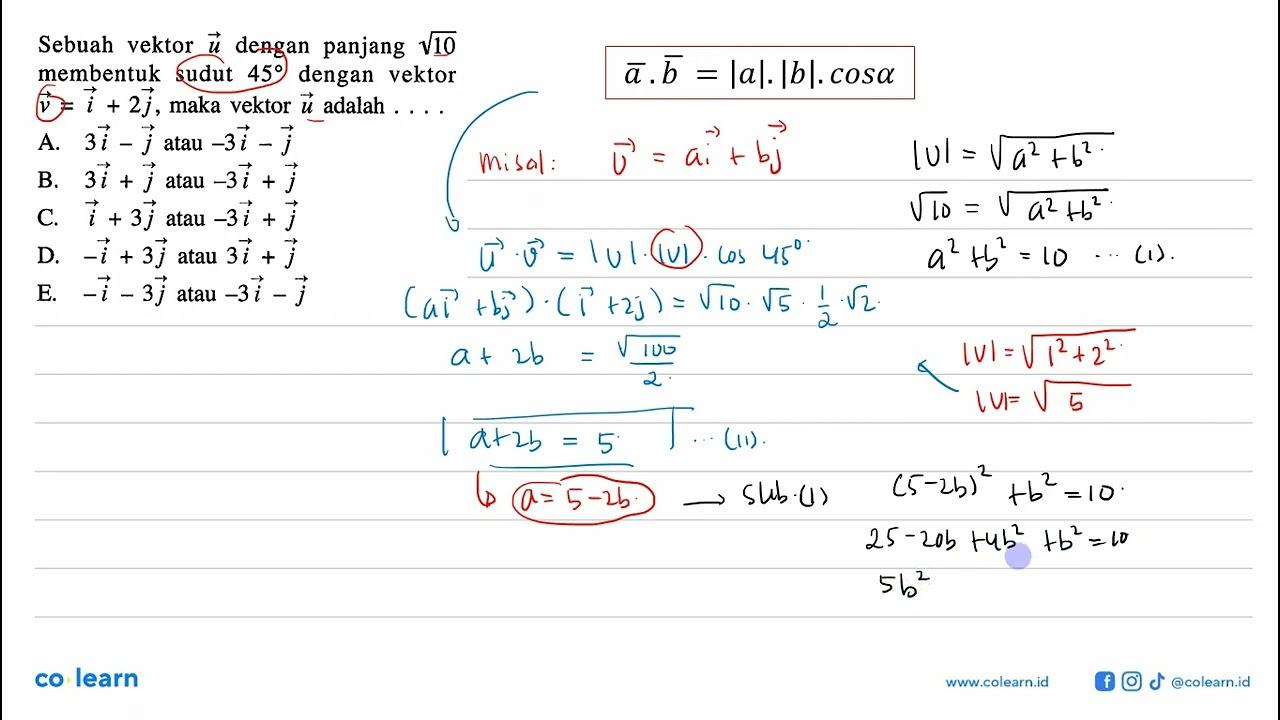 Sebuah vektor $\vec{u}$ dengan panjang $\sqrt{10}$
membentuk sudut 45° dengan vektor
$\vec{v} = \vec{i} + 2\vec{j}$, maka vektor $\vec{u}$ adalah . . . .
A. $3\vec{i} - \vec{j}$ atau $-3\vec{i} - \vec{j}$
B. $3\vec{i} + \vec{j}$ atau $-3\vec{i} + \vec{j}$
C. $\vec{i} + 3\vec{j}$ atau $-3\vec{i} + \vec{j}$
D. $-\vec{i} + 3\vec{j}$ atau $3\vec{i} + \vec{j}$
E. $-\vec{i} - 3\vec{j}$ atau $-3\vec{i} - \vec{j}$
$\overline{a} . \overline{b} = |a|. |b|. cos\alpha$
Misal: $\vec{u} = a\vec{i} + b\vec{j}$
$\vec{u} \cdot \vec{v} = |u| \cdot |v| \cdot \cos 45°$
$(a\vec{i} + b\vec{j}) \cdot (\vec{i} + 2j) = \sqrt{10} \cdot \sqrt{5} \cdot \frac{1}{2} \cdot \sqrt{2}$
$a + 2b = \frac{\sqrt{100}}{2}$
$a + 2b = 5$ ... (11).
$a = 5 - 2b$ → Sub. (1)
$|u| = \sqrt{a^2 + b^2}$
$\sqrt{10} = \sqrt{a^2 + b^2}$
$a^2 + b^2 = 10$ ... (1).
$|v| = \sqrt{1^2 + 2^2}$
$|v| = \sqrt{5}$
$(5 - 2b)^2 + b^2 = 10$
$25 - 20b + 4b^2 + b^2 = 10$
$5b^2$
co learn
www.colearn.id
@colearn.id